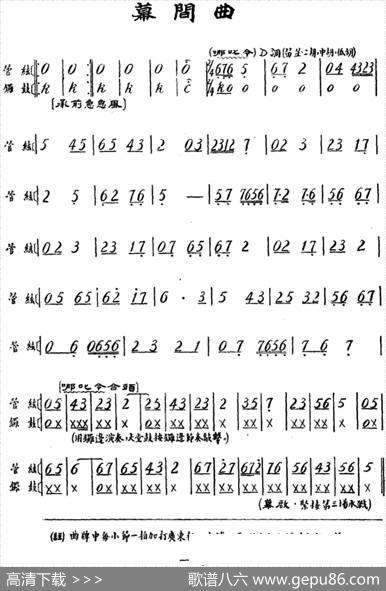 幕間曲
(哪吒令) D調(笛笙二胡中胡低胡)
管絃 0 0 0 0 0 0 2/4 676 5 67 2 04 4323
鑼鼓 k k k k k č k0 0 0 0 0
[承前急急風]
管絃 5 45 65 43 2 03 2312 7 02 3 23 17
管絃 2 5 62 76 5 — 57 7656 72 76 56 67
管絃 02 3 23 17 07 65 67 2 02 17 23 2
管絃 05 65 62 17 6· 3 5 43 25 32 56 67
管絃 06 0656 23 21 07 7656 76 7
[哪吒令合頭]
管絃 05 43 23 2 25 43 23 2 35 7 23 56 5 05
鑼鼓 0x xx xx x xx xx xx x xx x xx xx x 0x
(用鑼邊演奏,大堂鼓按鑼邊節奏敲擊。)
管絃 65 6 67 65 43 2 67 27 672 76 56 43 56 5
鑼鼓 xx x xx xx xx x xx xx xx xx xx xx xx x
(幕啟·緊接第三場水戰)
(註) 曲牌中每小節一拍加打廣東
一
高清下载 >>>
歌谱八六 www.gepu86.com